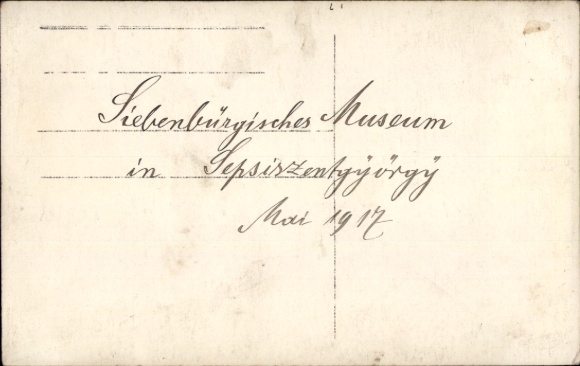 Siebenbürgisches Museum
in Sepsiszentgyörgy
Mai 1917